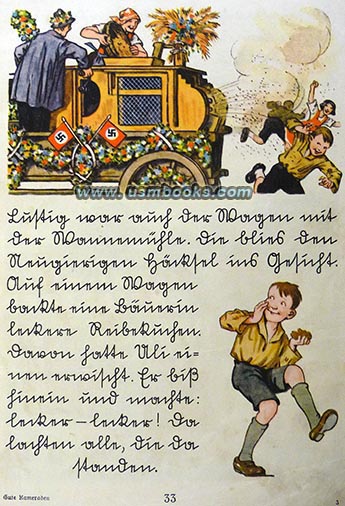 www.usmbooks.com
Lustig war auch der Wagen mit
der Wannemühle. Die blies den
Neugierigen Häcksel ins Gesicht.
Auf einem Wagen
backte eine Bäuerin
leckere Reibekuchen.
Davon hatte Uli ei-
nen erwischt. Er biß
hinein und machte:
lecker – lecker! Da
lachten alle, die da
standen.
Gute Kameraden
33
3